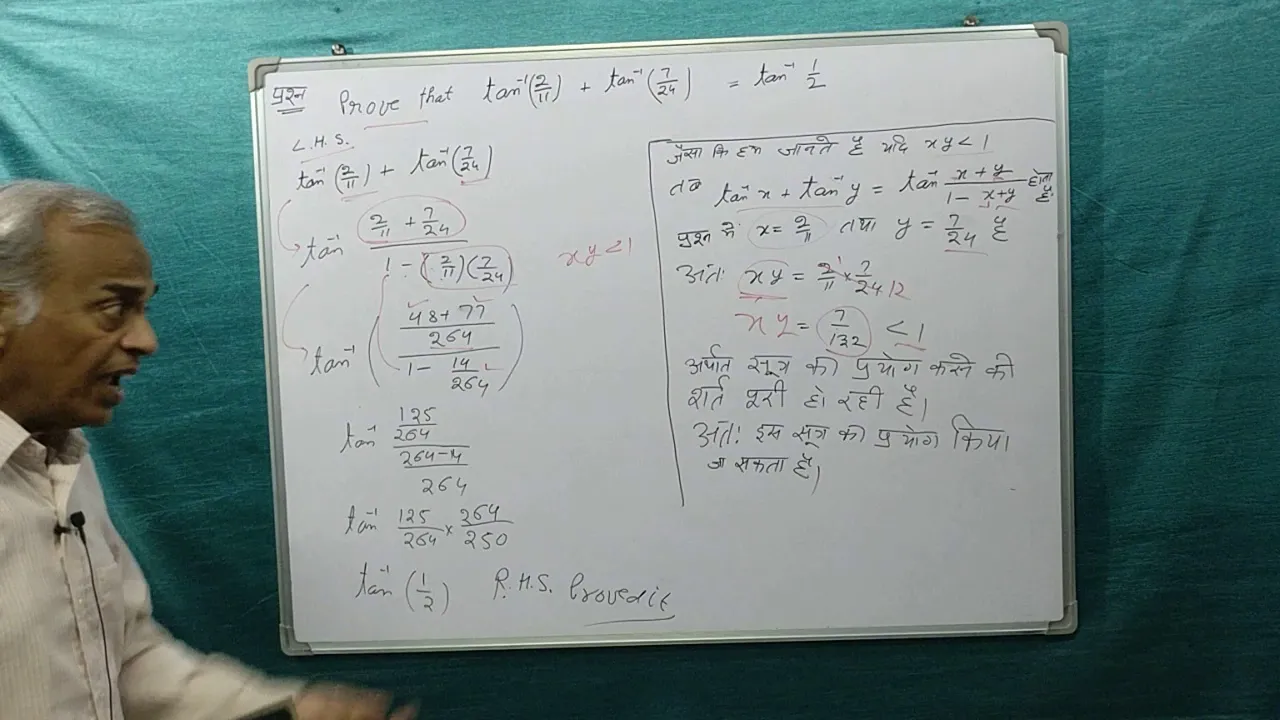 प्रश्न Prove that tan⁻¹(2/11) + tan⁻¹(7/24) = tan⁻¹ 1/2
L.H.S.
tan⁻¹(2/11) + tan⁻¹(7/24)
tan⁻¹ (2/11 + 7/24) / (1 - (2/11)(7/24))
xy < 1
tan⁻¹ (((48+77)/264) / (1 - 14/264))
tan⁻¹ (125/264) / ((264-14)/264)
tan⁻¹ 125/264 × 264/250
tan⁻¹ (1/2) R.H.S.
जैसा कि हम जानते है यदि xy < 1
तब tan⁻¹ x + tan⁻¹ y = tan⁻¹ (x+y)/(1-x+y) होता है
प्रश्न में: x = 2/11 तथा y = 7/24 है
अतः xy = 2/11 × 7/24 1 12
xy = 7/132 < 1
अर्थात सूत्र को प्रयोग करने की
शर्त पूरी हो रही है।
अतः इस सूत्र को प्रयोग किया
जा सकता है।